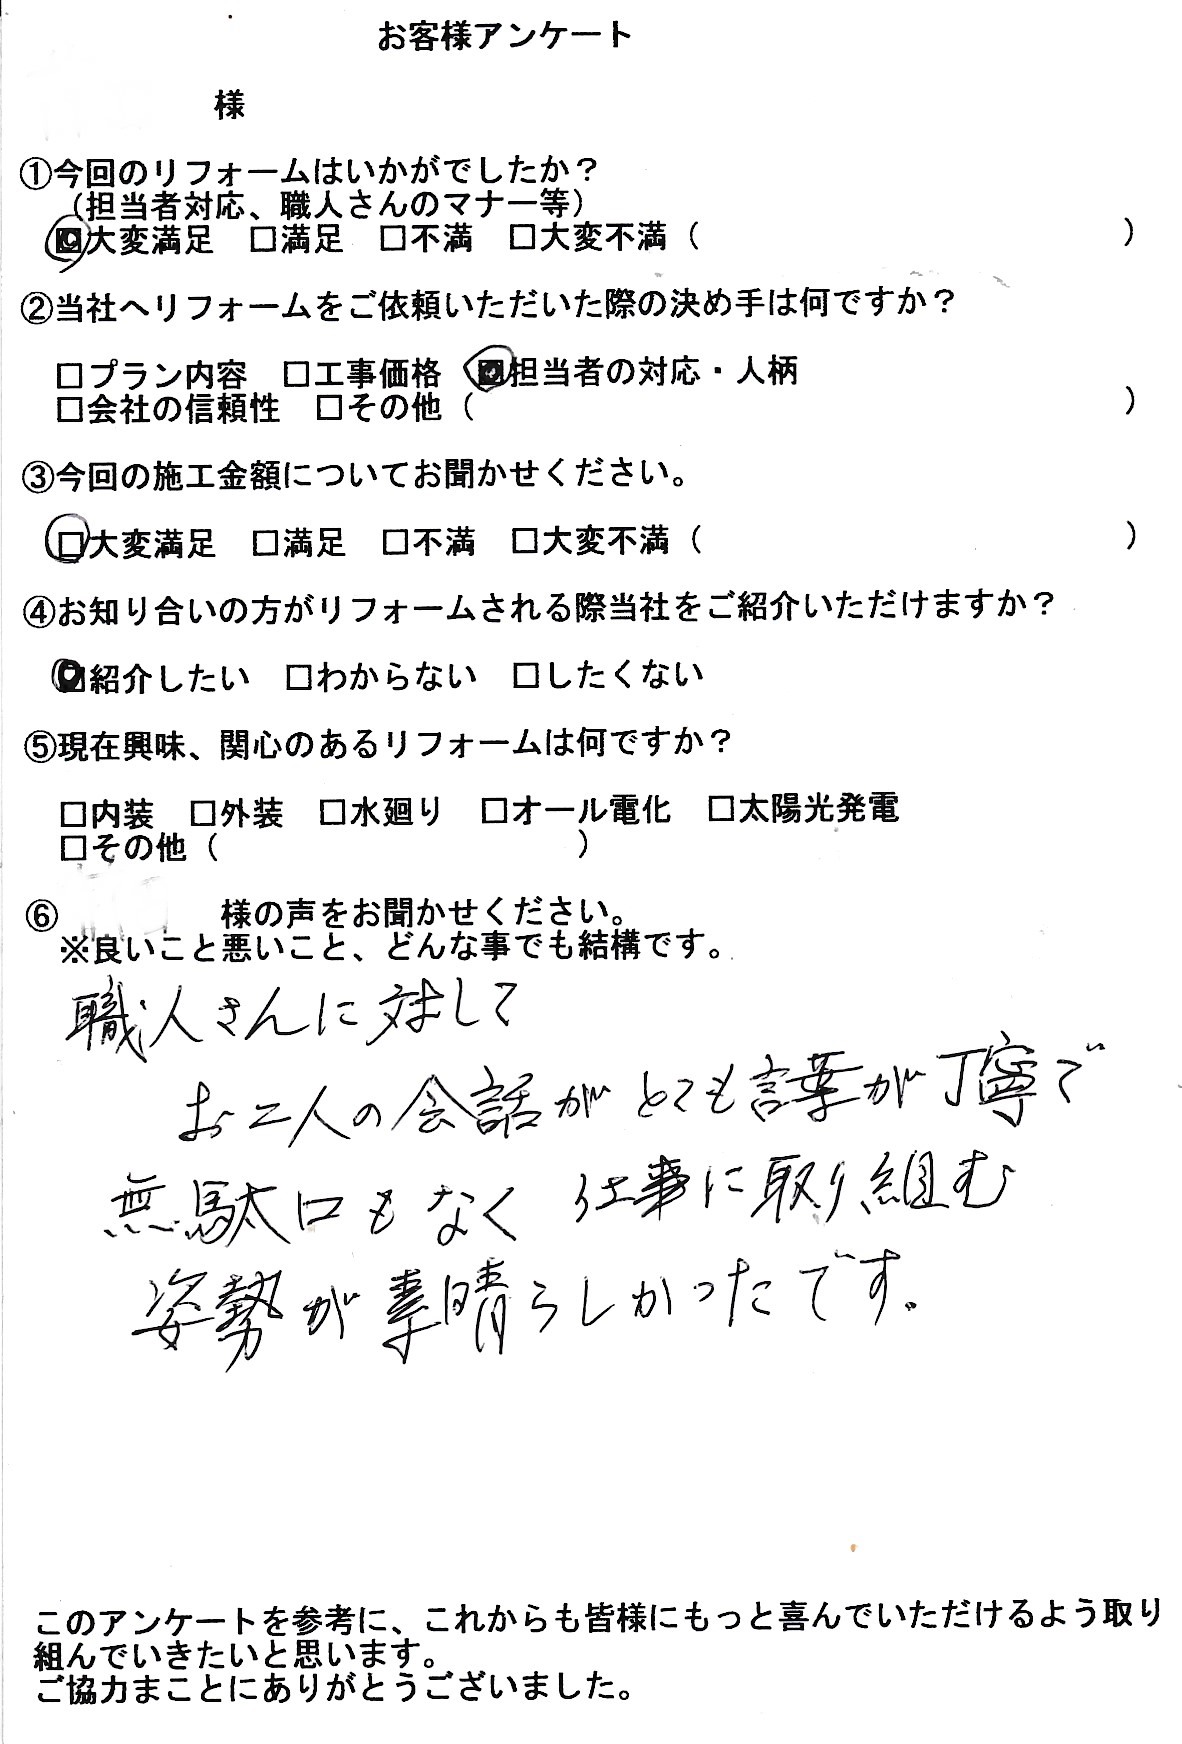 お客様アンケート
様
①今回のリフォームはいかがでしたか？
（担当者対応、職人さんのマナー等）
☑大変満足　□満足　□不満　□大変不満（　　　　　　　）
②当社へリフォームをご依頼いただいた際の決め手は何ですか？
□プラン内容　□工事価格　☑担当者の対応・人柄
□会社の信頼性　□その他（　　　　　　　）
③今回の施工金額についてお聞かせください。
□大変満足　□満足　□不満　□大変不満（　　　　　　　）
④お知り合いの方がリフォームされる際当社をご紹介いただけますか？
☑紹介したい　□わからない　□したくない
⑤現在興味、関心のあるリフォームは何ですか？
□内装　□外装　□水廻り　□オール電化　□太陽光発電
□その他（　　　　　　　）
⑥　　　様の声をお聞かせください。
※良いこと悪いこと、どんな事でも結構です。
職人さんに対して
お二人の会話がとても言葉が丁寧で
無駄口もなく仕事に取り組む
姿勢が素晴らしかったです。
このアンケートを参考に、これからも皆様にもっと喜んでいただけるよう取り
組んでいきたいと思います。
ご協力まことにありがとうございました。